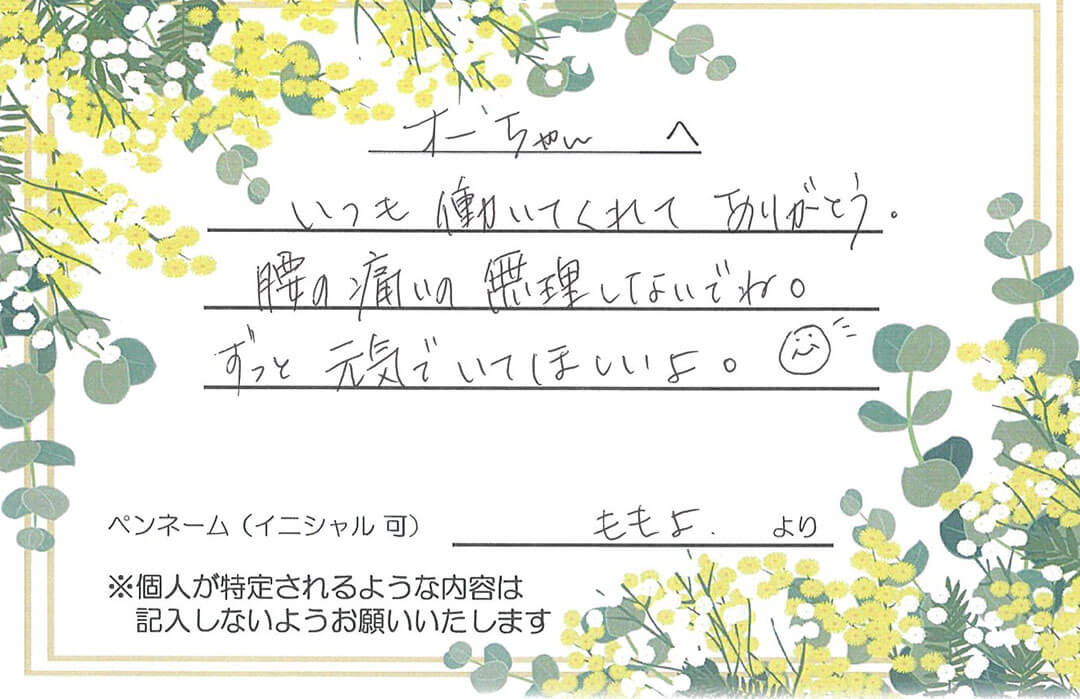 オーちゃん へ
いつも 働いてくれて ありがとう。
腰の 痛いの 無理しないでね。
ずっと 元気で いてほしいよ。
ペンネーム（イニシャル 可） ももよ. より
※個人が特定されるような内容は
記入しないようお願いいたします